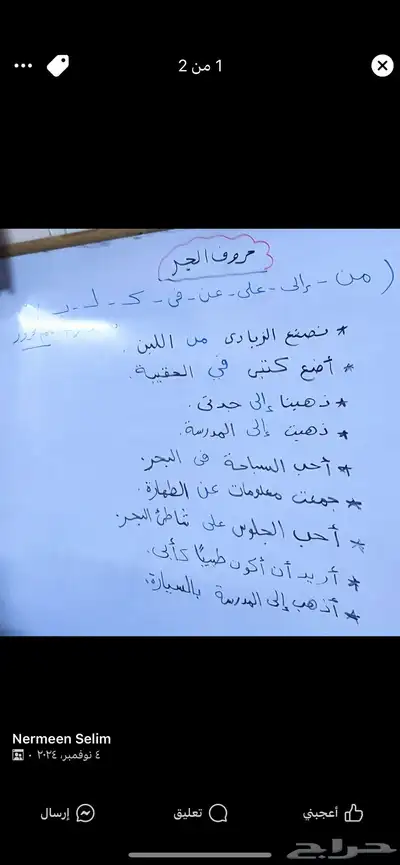 1 من 2
حروف الجر
( من - إلى - على - عن - في - كـ - لـ - بـ
* نصنع الزبادى من اللبن.
* أضع كتبى في الحقيبة.
* ذهبنا إلى جدتى.
* ذهبت إلى المدرسة.
* أحب السباحة فى البحر.
* جمعت معلومات عن الطهارة.
* أحب الجلوس على شاطئ البحر.
* أريد أن أكون طبيبًا كأبى.
* أذهب إلى المدرسة بالسيارة.
Nermeen Selim
٤ نوفمبر، ٢٠٢٤
أعجبني
تعليق
إرسال
حراج